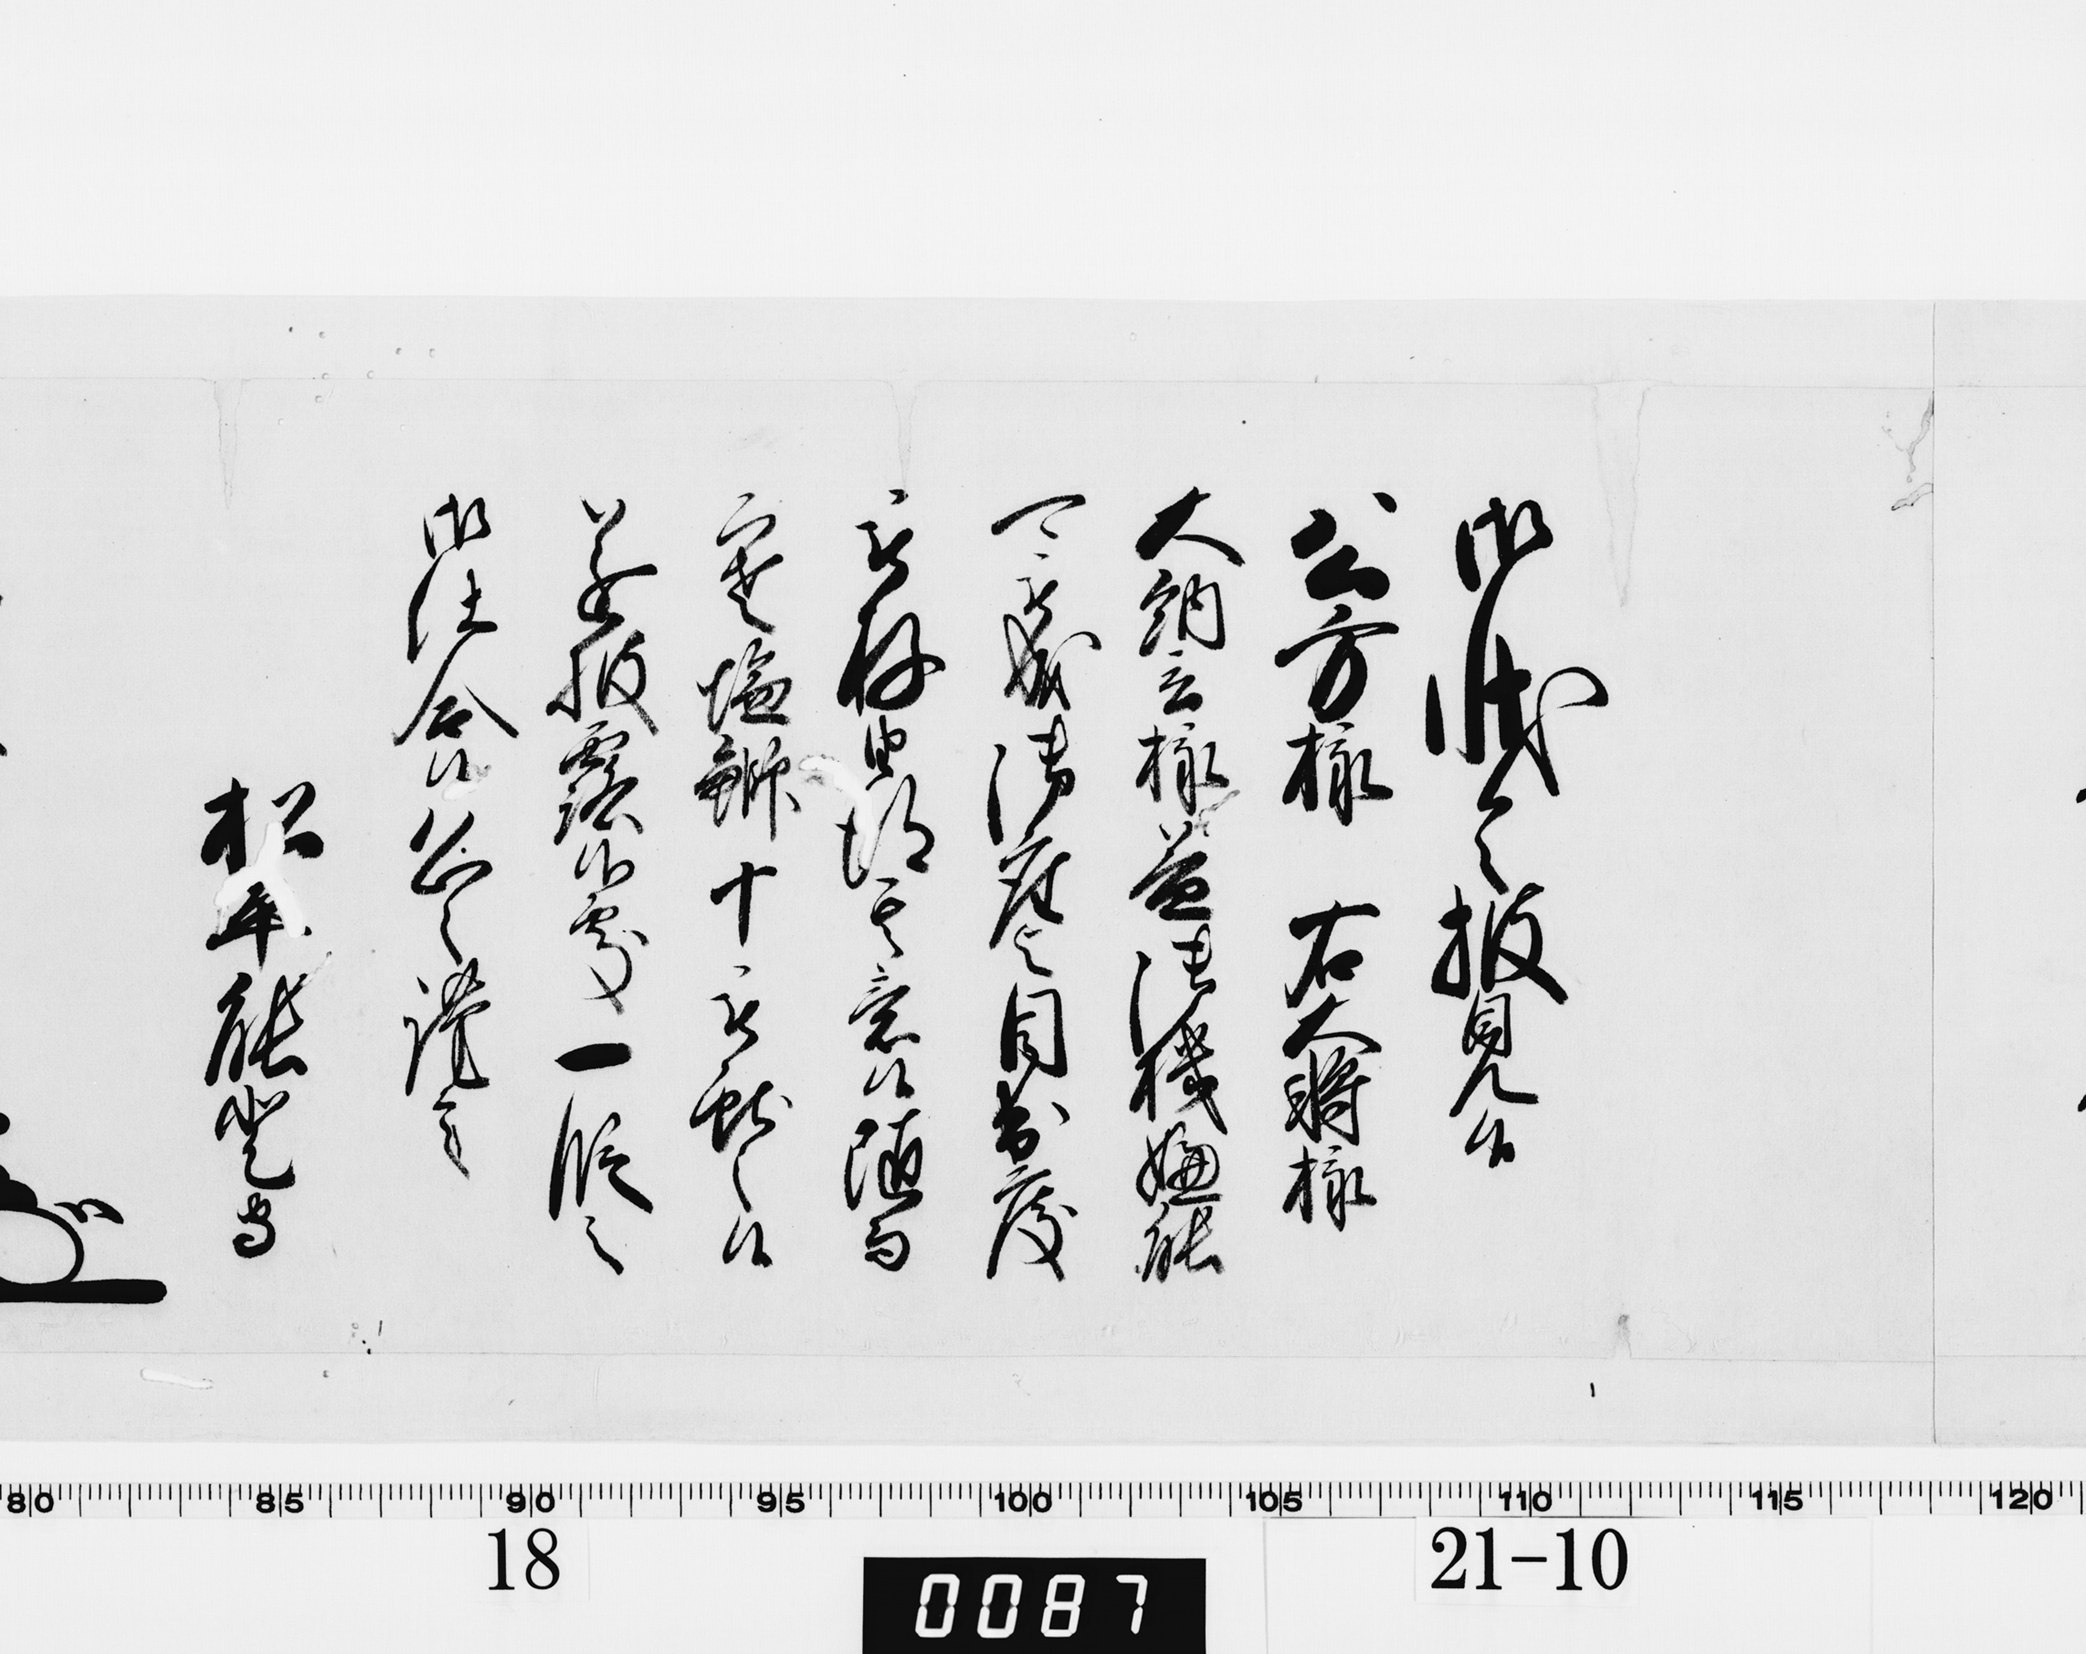 御状令披見候
公方様 右大将様
大納言様益御機嫌能
可被成御座与目出度
被存由得其意候随而
寒塩鰤十被献之候
遂披露候処一段之
御仕合候恐々謹言
松平能登守
80 85 90 95 100 105 110 115 120
18 0087 21-10